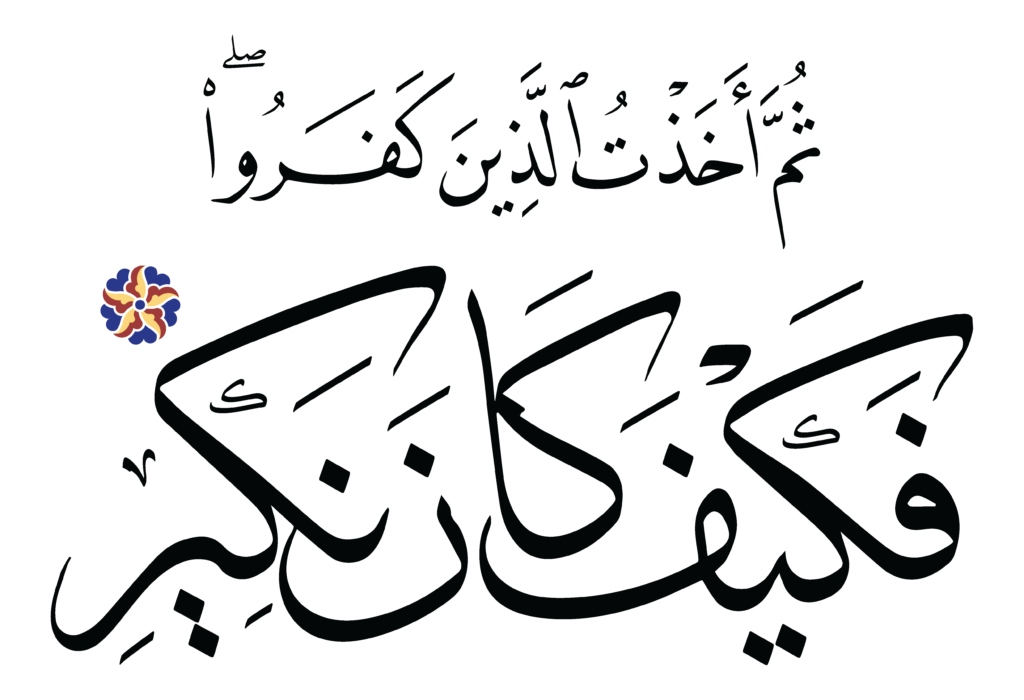 ثُمَّ أَخَذْتُ ٱلَّذِينَ كَفَرُوا۟ ۖ
فَكَيْفَ كَانَ نَكِيرِ